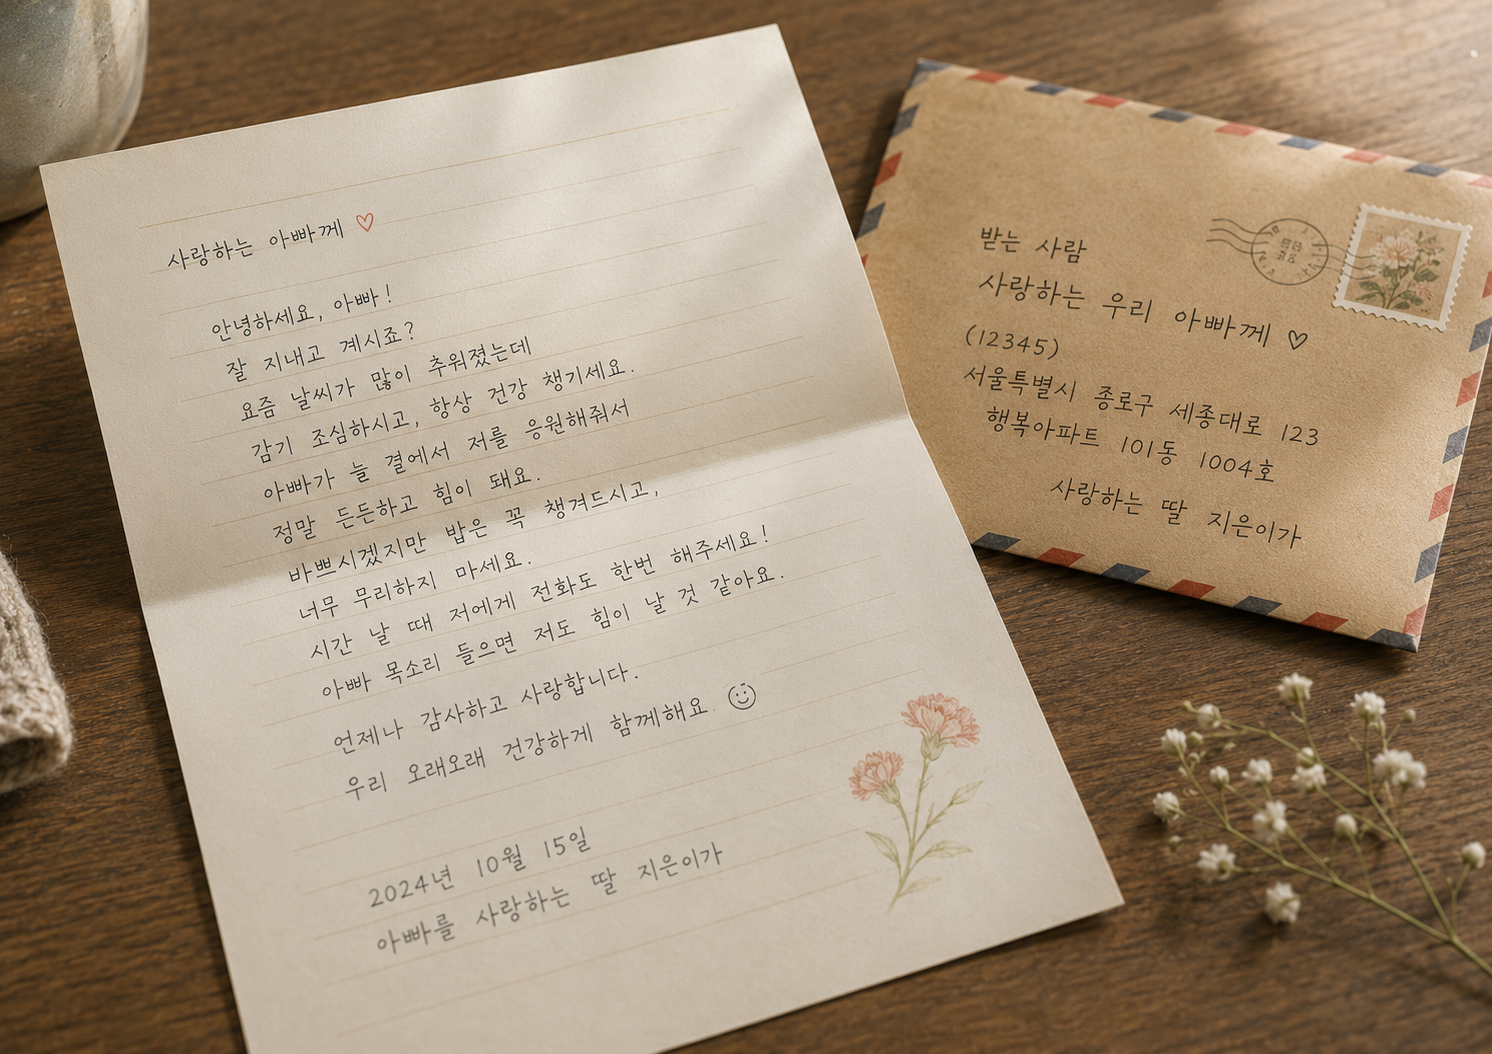 사랑하는 아빠께 ♡
안녕하세요, 아빠!
잘 지내고 계시죠?
요즘 날씨가 많이 추워졌는데
감기 조심하시고, 항상 건강 챙기세요.
아빠가 늘 곁에서 저를 응원해줘서
정말 든든하고 힘이 돼요.
바쁘시겠지만 밥은 꼭 챙겨드시고,
너무 무리하지 마세요.
시간 날 때 저에게 전화도 한번 해주세요!
아빠 목소리 들으면 저도 힘이 날 것 같아요.
언제나 감사하고 사랑합니다.
우리 오래오래 건강하게 함께해요 ☺
2024년 10월 15일
아빠를 사랑하는 딸 지은이가
받는 사람
사랑하는 우리 아빠께 ♡
(12345)
서울특별시 종로구 세종대로 123
행복아파트 101동 1004호
사랑하는 딸 지은이가